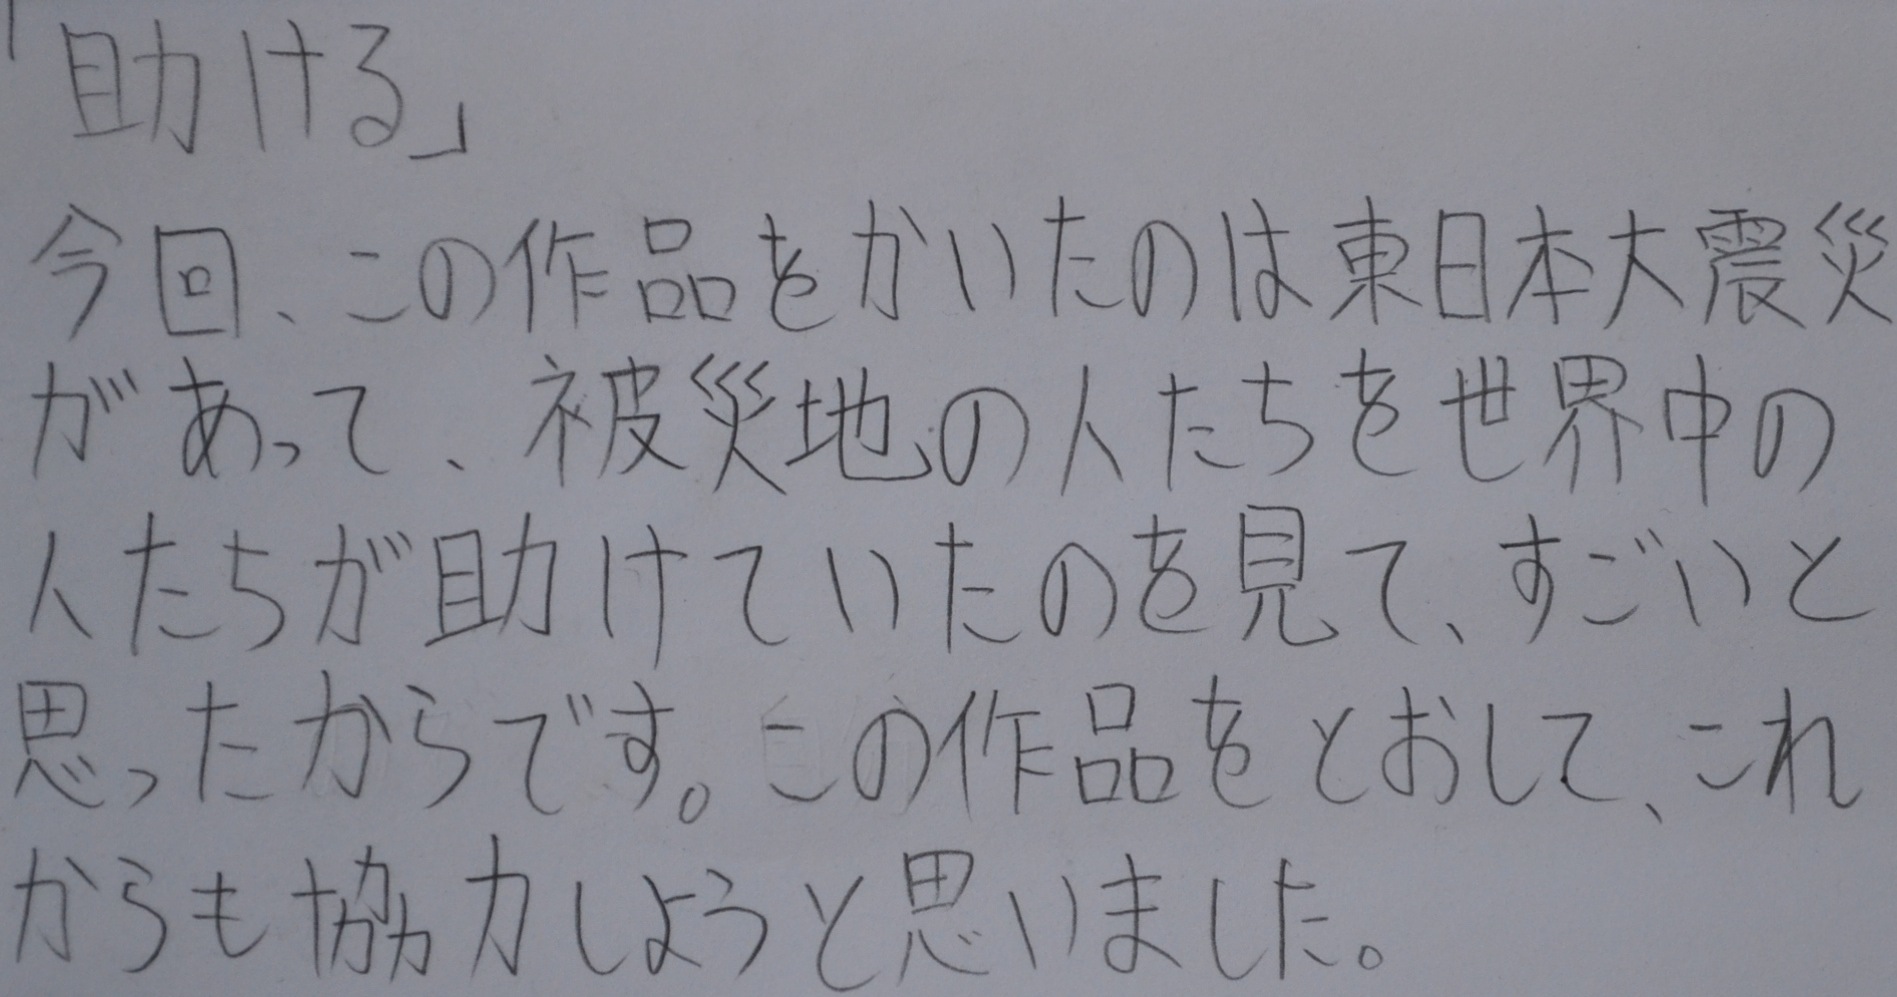 「助ける」
今回、この作品をかいたのは東日本大震災
があって、被災地の人たちを世界中の
人たちが助けていたのを見て、すごいと
思ったからです。この作品をとおして、これ
からも協力しようと思いました。